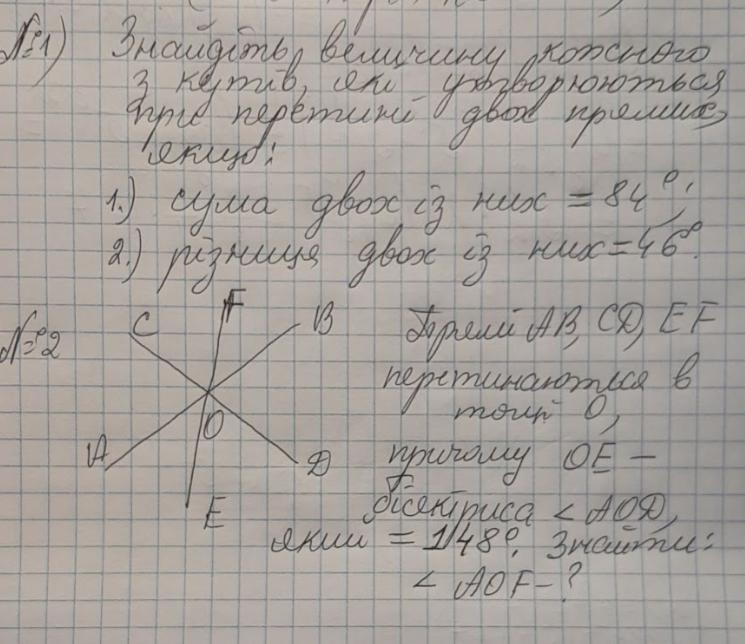 №1) Знайдіть величину кожного
з кутів, які утворюються
при перетині двох прямих,
якщо:
1.) сума двох із них = 84°;
2.) різниця двох із них = 46°.
№2
C
F
B
O
A
D
E
Прямі AB, CD, EF
перетинаються в
точці O,
причому OE –
бісектриса < AOD,
який = 148°. Знайти:
< AOF – ?